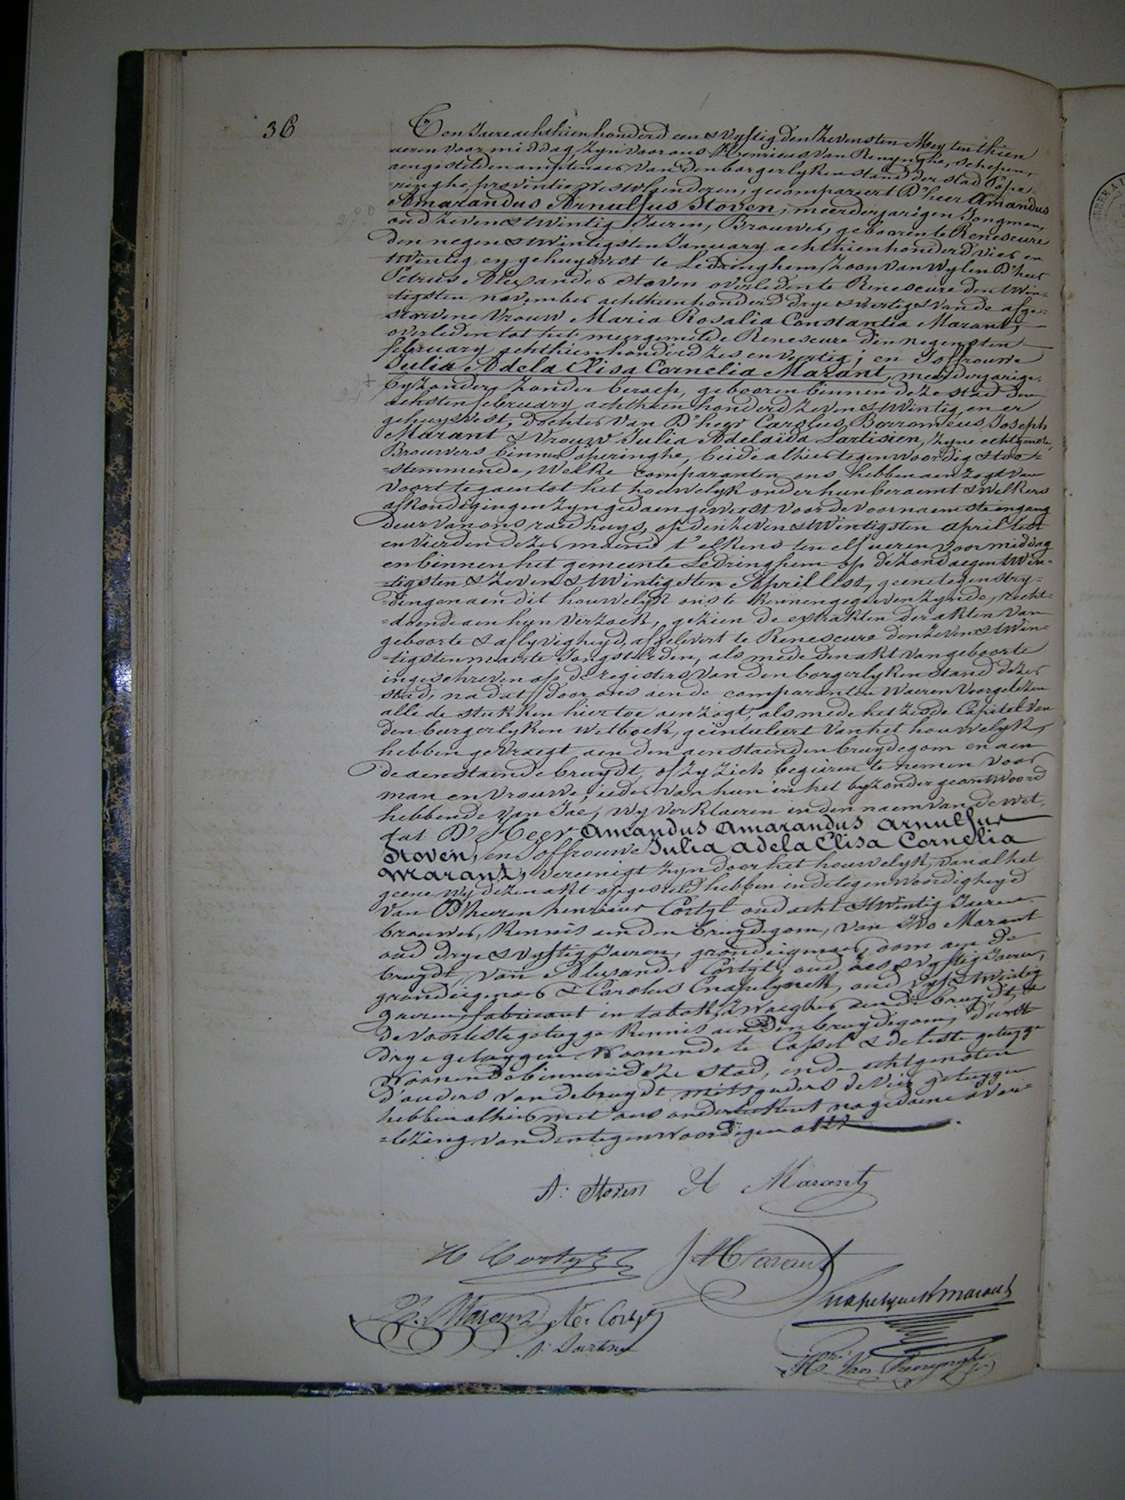 36
Ten Jaere achthien honderd een & vyftig den zevensten Mey ten thien
ueren voor middag, zyn voor ons Henricus Van Renynghe, schepen,
aengestelden amptenaer van den borgerlyken stand der stad Pope-
ringhe, provintie Westvlaenderen, gecompareert D'heer Amandus
Amarandus Arnulfus Stoven, meerderjarigen Jongman,
oud zeven & twintig Jaeren, Brouwer, gebooren te Renescure
den negen & twintigsten January achthien honderd vier en
twintig en gehuysvest te Ledringhem, zoon van wylen D'heer
Petrus Alexander Stoven overleden te Renescure den twin-
-tigsten november achthien honderd drye & veertig & van de afge-
-storvene Vrouw Maria Rosalia Constantia Marant,
overleden tot het meergemelde Renescure den negensten
february achthien honderd zes en veertig; en Joffrouwe
Julia Adela Elisa Cornelia Marant, meerderjarige,
byzondere zonder beroep, gebooren binnen deze stad den
achsten february achthien honderd zeven & twintig, en er
gehuysvest, dochter van D'heer Carolus Borromeus Joseph
Marant & Vrouw Julia Adelaida Sartisien, zyne echtgenote,
Brouwers binnen poperinghe, beide alhier tegenwoordig & toe-
-stemmende, welke comparanten ons hebben aenzogt van
voort te gaen tot het houwelyk onder hun beraemt & welkers
afkondigingen zyn gedaen geweest voor de voornaemste ingang
deur van ons raedhuys, op den zeven & twintigsten april
en vierden dezer maend t'elkens ten elf ueren voor middag
en binnen het gemeente Ledringhem op de zondaegen twin-
-tigsten & zeven & twintigsten April, geene tegenstry-
-dingen aen dit houwelyk ons te kennen gegeven zynde, recht-
-doende aen hun verzoek, gezien de extrakten der akten van
geboorte & aflyvigheyd, afgelevert te Renescure den zeven & twin-
-tigsten maerte Jongstleden, als mede den akt van geboorte
ingeschreven op de registers van den borgerlyken stand dezer
stad, na dat door ons aen de comparanten waeren voorgelezen
alle de stukken hier toe aenzogt, als mede het zesde Capitel van
den burgerlyken wetboek, geïntuleert van het houwelyk,
hebben gevraegt aen den aenstaenden bruydegom en aen
de aenstaende bruydt, of zy zich begeiren te nemen voor
man en vrouwe, ieder van hun in het byzonder geantwoord
hebbende van Jae, wy verklaeren in den naem van de wet,
dat D'Heer Amandus Amarandus Arnulfus
Stoven, en Joffrouwe Julia Adela Elisa Cornelia
Marant, vereenigt zyn door het houwelyk, van al het
geene wy dezen akt opgesteld hebben in de tegenwoordigheyd
van D'heeren henricus Cortyl oud acht & twintig Jaeren
brouwer, kennis aen den bruydegom, van Ivo Marant
oud drye & vyftig Jaeren, grondeigenaer, oom aen de
bruydt, van Alexander Cortyl, oud zes & vyftig Jaeren,
grondeigenaer & Carolus Snapelynck, oud vyf & twintig
Jaeren, fabricant in tabak, zwaeger aen de bruydt, &
de voorleste getuyge kennis aen den bruydegom, d'eerste
drye getuygen woonende te Cassel & de leste getuyge
woonende binnen deze stad, ende echtgenoten
d'ouders van de bruydt mitsgaders de vier getuygen
hebben alhier met ons onderteekent na gedaene over-
-lezing van den tegenwoordigen akt.
A: Stoven A Marant
H Cortyl J Marant
Marant Ax Cortyl Snapelynck marant
J: Sartis
Hri Van Renynghe